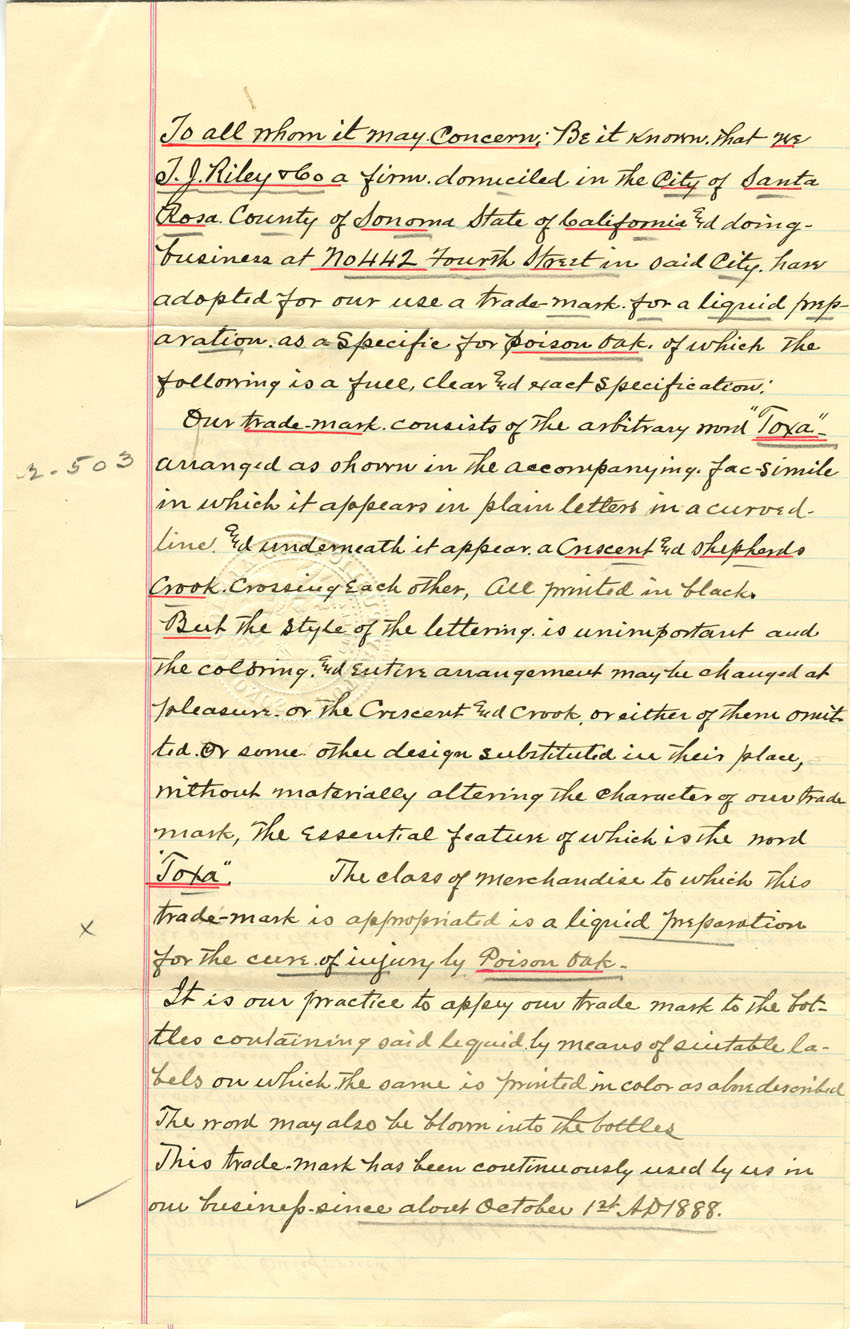 To all whom it may Concern; Be it Known. that we
T. J. Riley & Co a firm. domiciled in the City of Santa
Rosa. County of Sonoma State of California and doing-
business at No 442 Fourth Street in said City. have
adopted for our use a trade-mark. for a liquid prep-
aration. as a Specific for poison Oak. of which the
following is a full, clear and exact Specification:
Our trade-mark. consists of the arbitrary word "Toxa"-
2-503
arranged as shown in the accompanying. fac-simile
in which it appears in plain letters in a curved-
line. and underneath it appear. a Crescent and Shepherds
Crook. Crossing Each other, All printed in black.
But the Style of the lettering. is unimportant and
the coloring. and Entire arrangement may be changed at
pleasure. or the Crescent and Crook, or either of them omit-
ted. Or some other design Substituted in their place,
without materially altering the Character of our trade
mark, the Essential feature of which is the word
"Toxa". The class of merchandise to which this
trade-mark is appropriated is a liquid preparation
x
for the cure. of injury by Poison Oak-
It is our practice to apply our trade mark to the bot-
tles containing said liquid by means of suitable la-
bels on which the same is printed in color as above described
The word may also be blown into the bottles
This trade-mark has been continuously used by us in
our business-since about October 1st AD 1888.